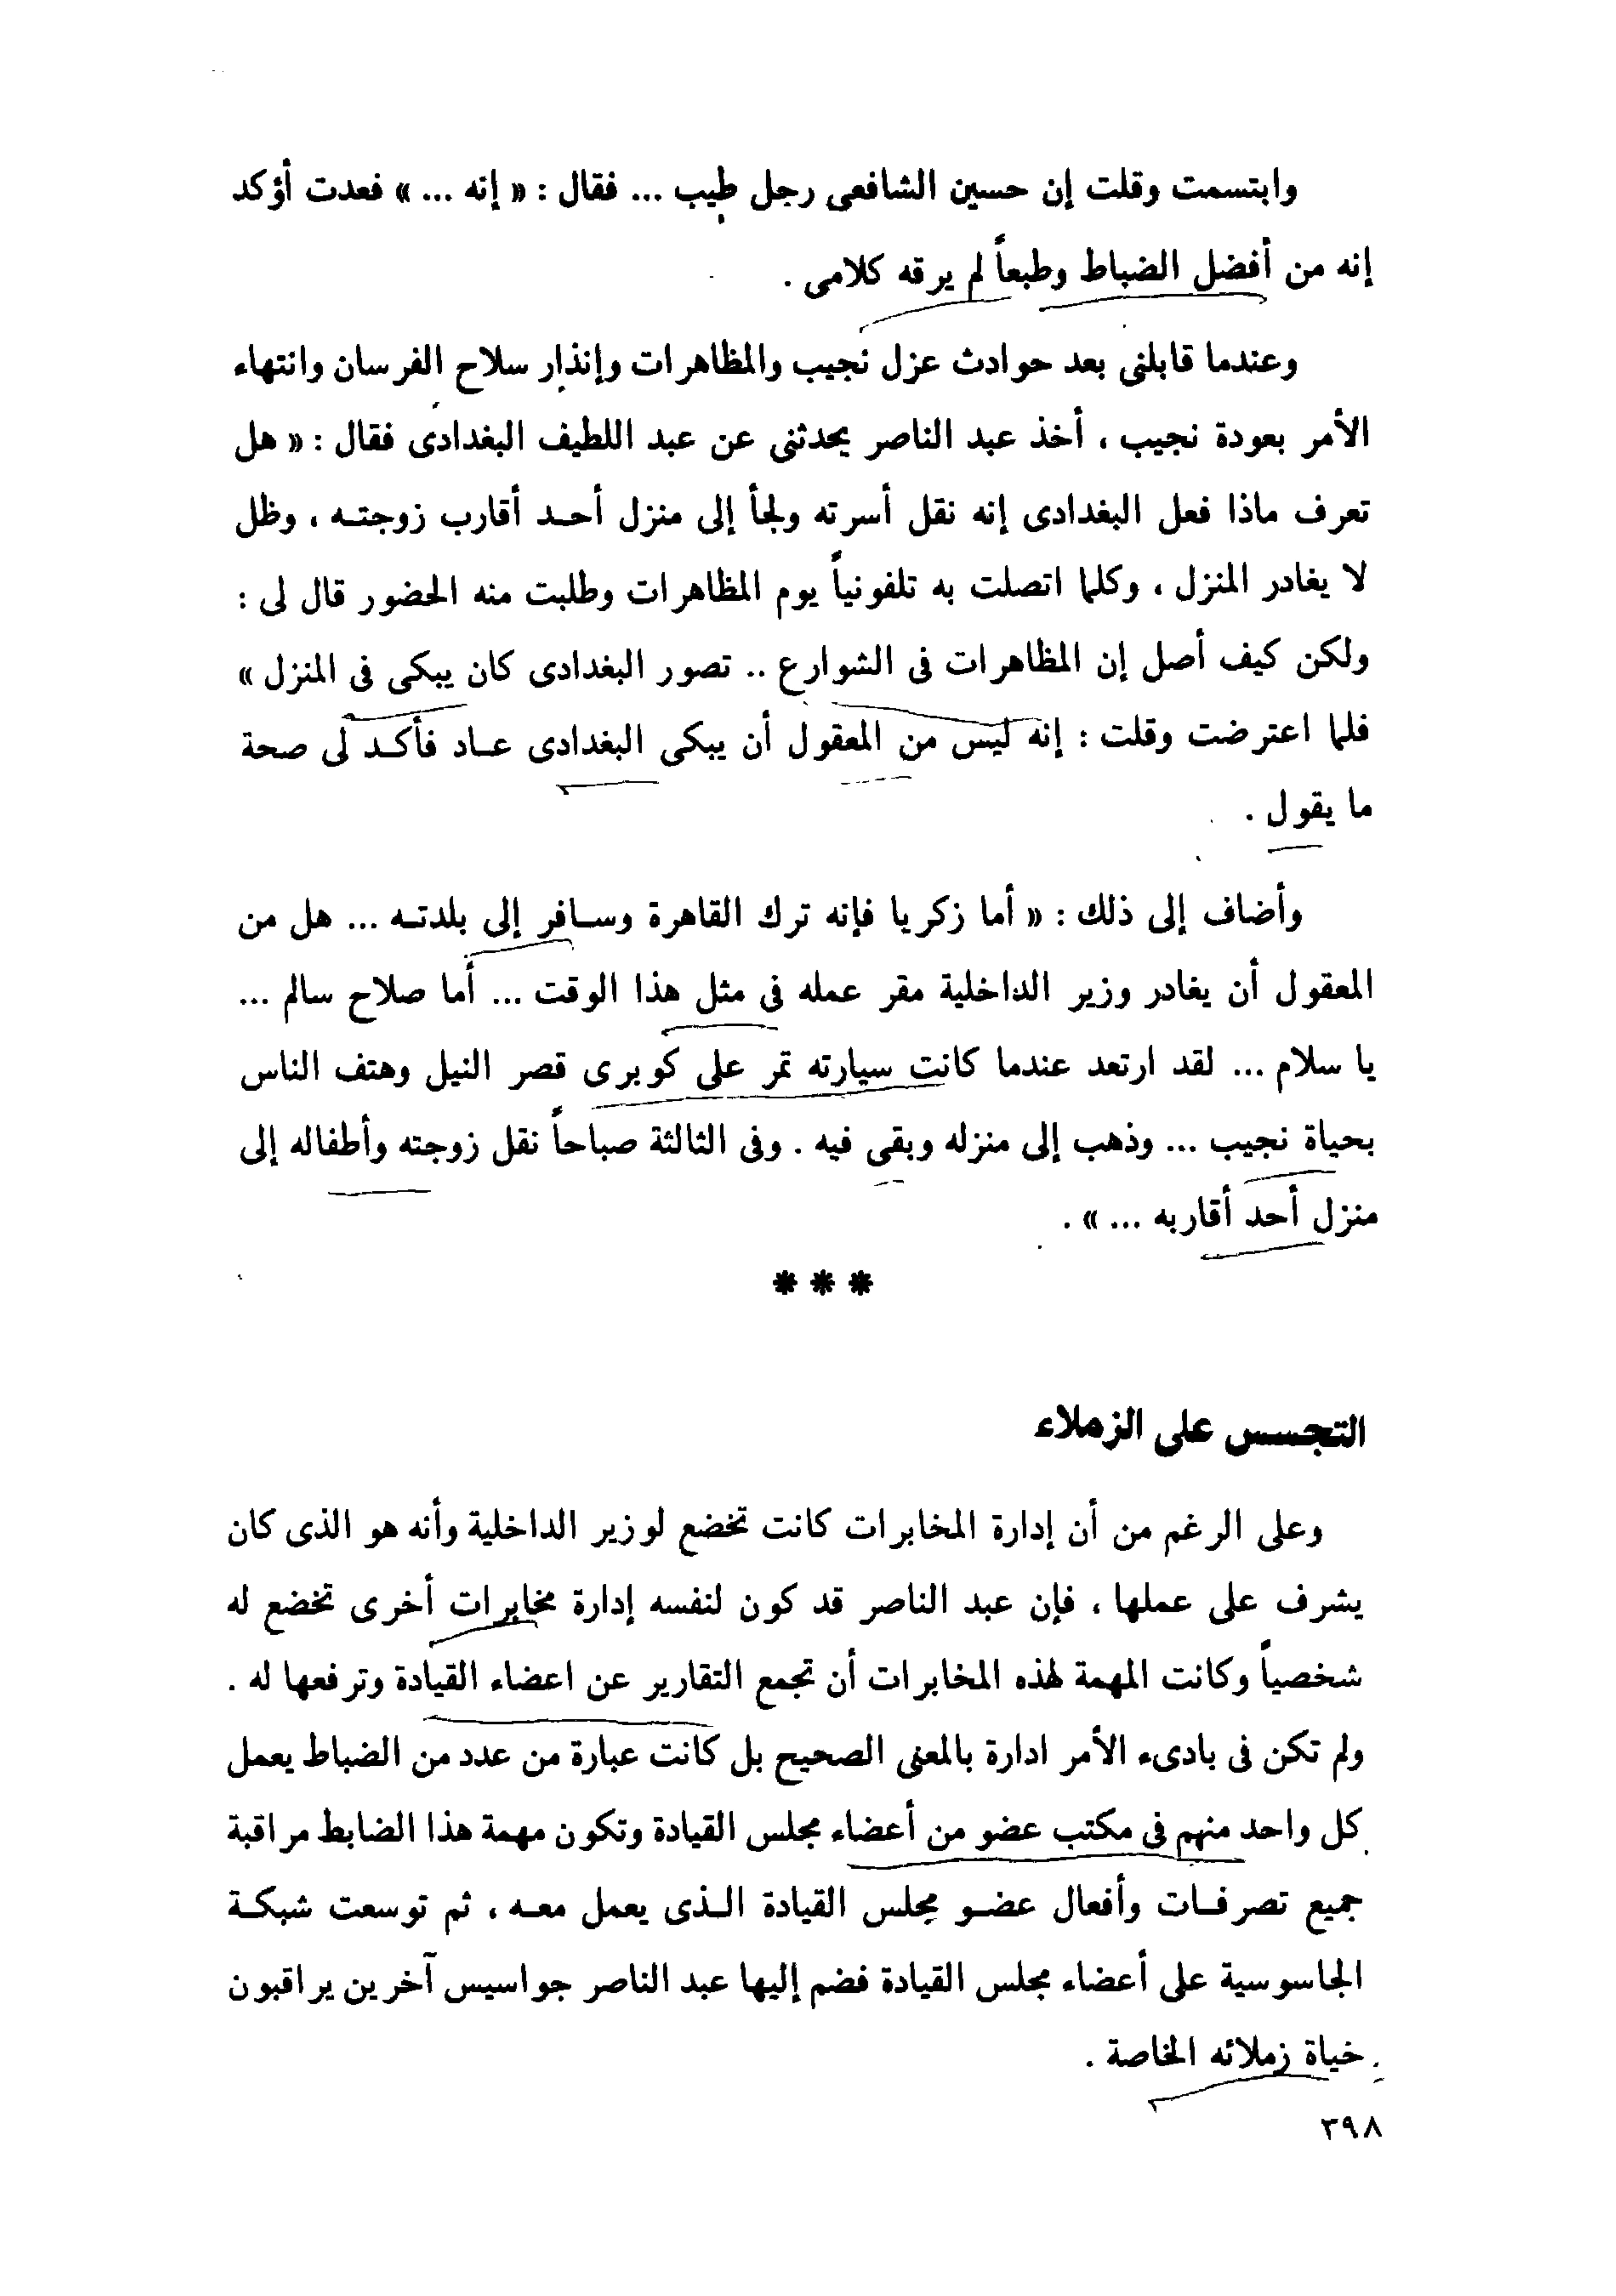 وابتسمت وقلت إن حسين الشافعى رجل طيب ... فقال : « إنه ... » فعدت أؤكد
إنه من أفضل الضباط وطبعاً لم يرقه كلامى .
وعندما قابلنى بعد حوادث عزل نجيب والمظاهرات وإنذار سلاح الفرسان وانتهاء
الأمر بعودة نجيب ، أخذ عبد الناصر يحدثنى عن عبد اللطيف البغدادى فقال : « هل
تعرف ماذا فعل البغدادى إنه نقل أسرته ولجأ إلى منزل أحد أقارب زوجته ، وظل
لا يغادر المنزل ، وكلما اتصلت به تلفونياً يوم المظاهرات وطلبت منه الحضور قال لى :
ولكن كيف أصل إن المظاهرات فى الشوارع .. تصور البغدادى كان يبكى فى المنزل »
فلما اعترضت وقلت : إنه ليس من المعقول أن يبكى البغدادى عاد فأكد لى صحة
ما يقول .
وأضاف إلى ذلك : « أما زكريا فإنه ترك القاهرة وسافر إلى بلدته ... هل من
المعقول أن يغادر وزير الداخلية مقر عمله فى مثل هذا الوقت ... أما صلاح سالم ...
يا سلام ... لقد ارتعد عندما كانت سيارته تمر على كوبرى قصر النيل وهتف الناس
بحياة نجيب ... وذهب إلى منزله وبقى فيه . وفى الثالثة صباحاً نقل زوجته وأطفاله إلى
منزل أحد أقاربه ... » .
* * *
التجسس على الزملاء
وعلى الرغم من أن إدارة المخابرات كانت تخضع لوزير الداخلية وأنه هو الذى كان
يشرف على عملها ، فإن عبد الناصر قد كون لنفسه إدارة مخابرات أخرى تخضع له
شخصياً وكانت المهمة لهذه المخابرات أن تجمع التقارير عن اعضاء القيادة وترفعها له .
ولم تكن فى بادىء الأمر ادارة بالمعنى الصحيح بل كانت عبارة من عدد من الضباط يعمل
كل واحد منهم فى مكتب عضو من أعضاء مجلس القيادة وتكون مهمة هذا الضابط مراقبة
جميع تصرفات وأفعال عضو مجلس القيادة الذى يعمل معه ، ثم توسعت شبكة
الجاسوسية على أعضاء مجلس القيادة فضم إليها عبد الناصر جواسيس آخرين يراقبون
حياة زملائه الخاصة .
٣٩٨